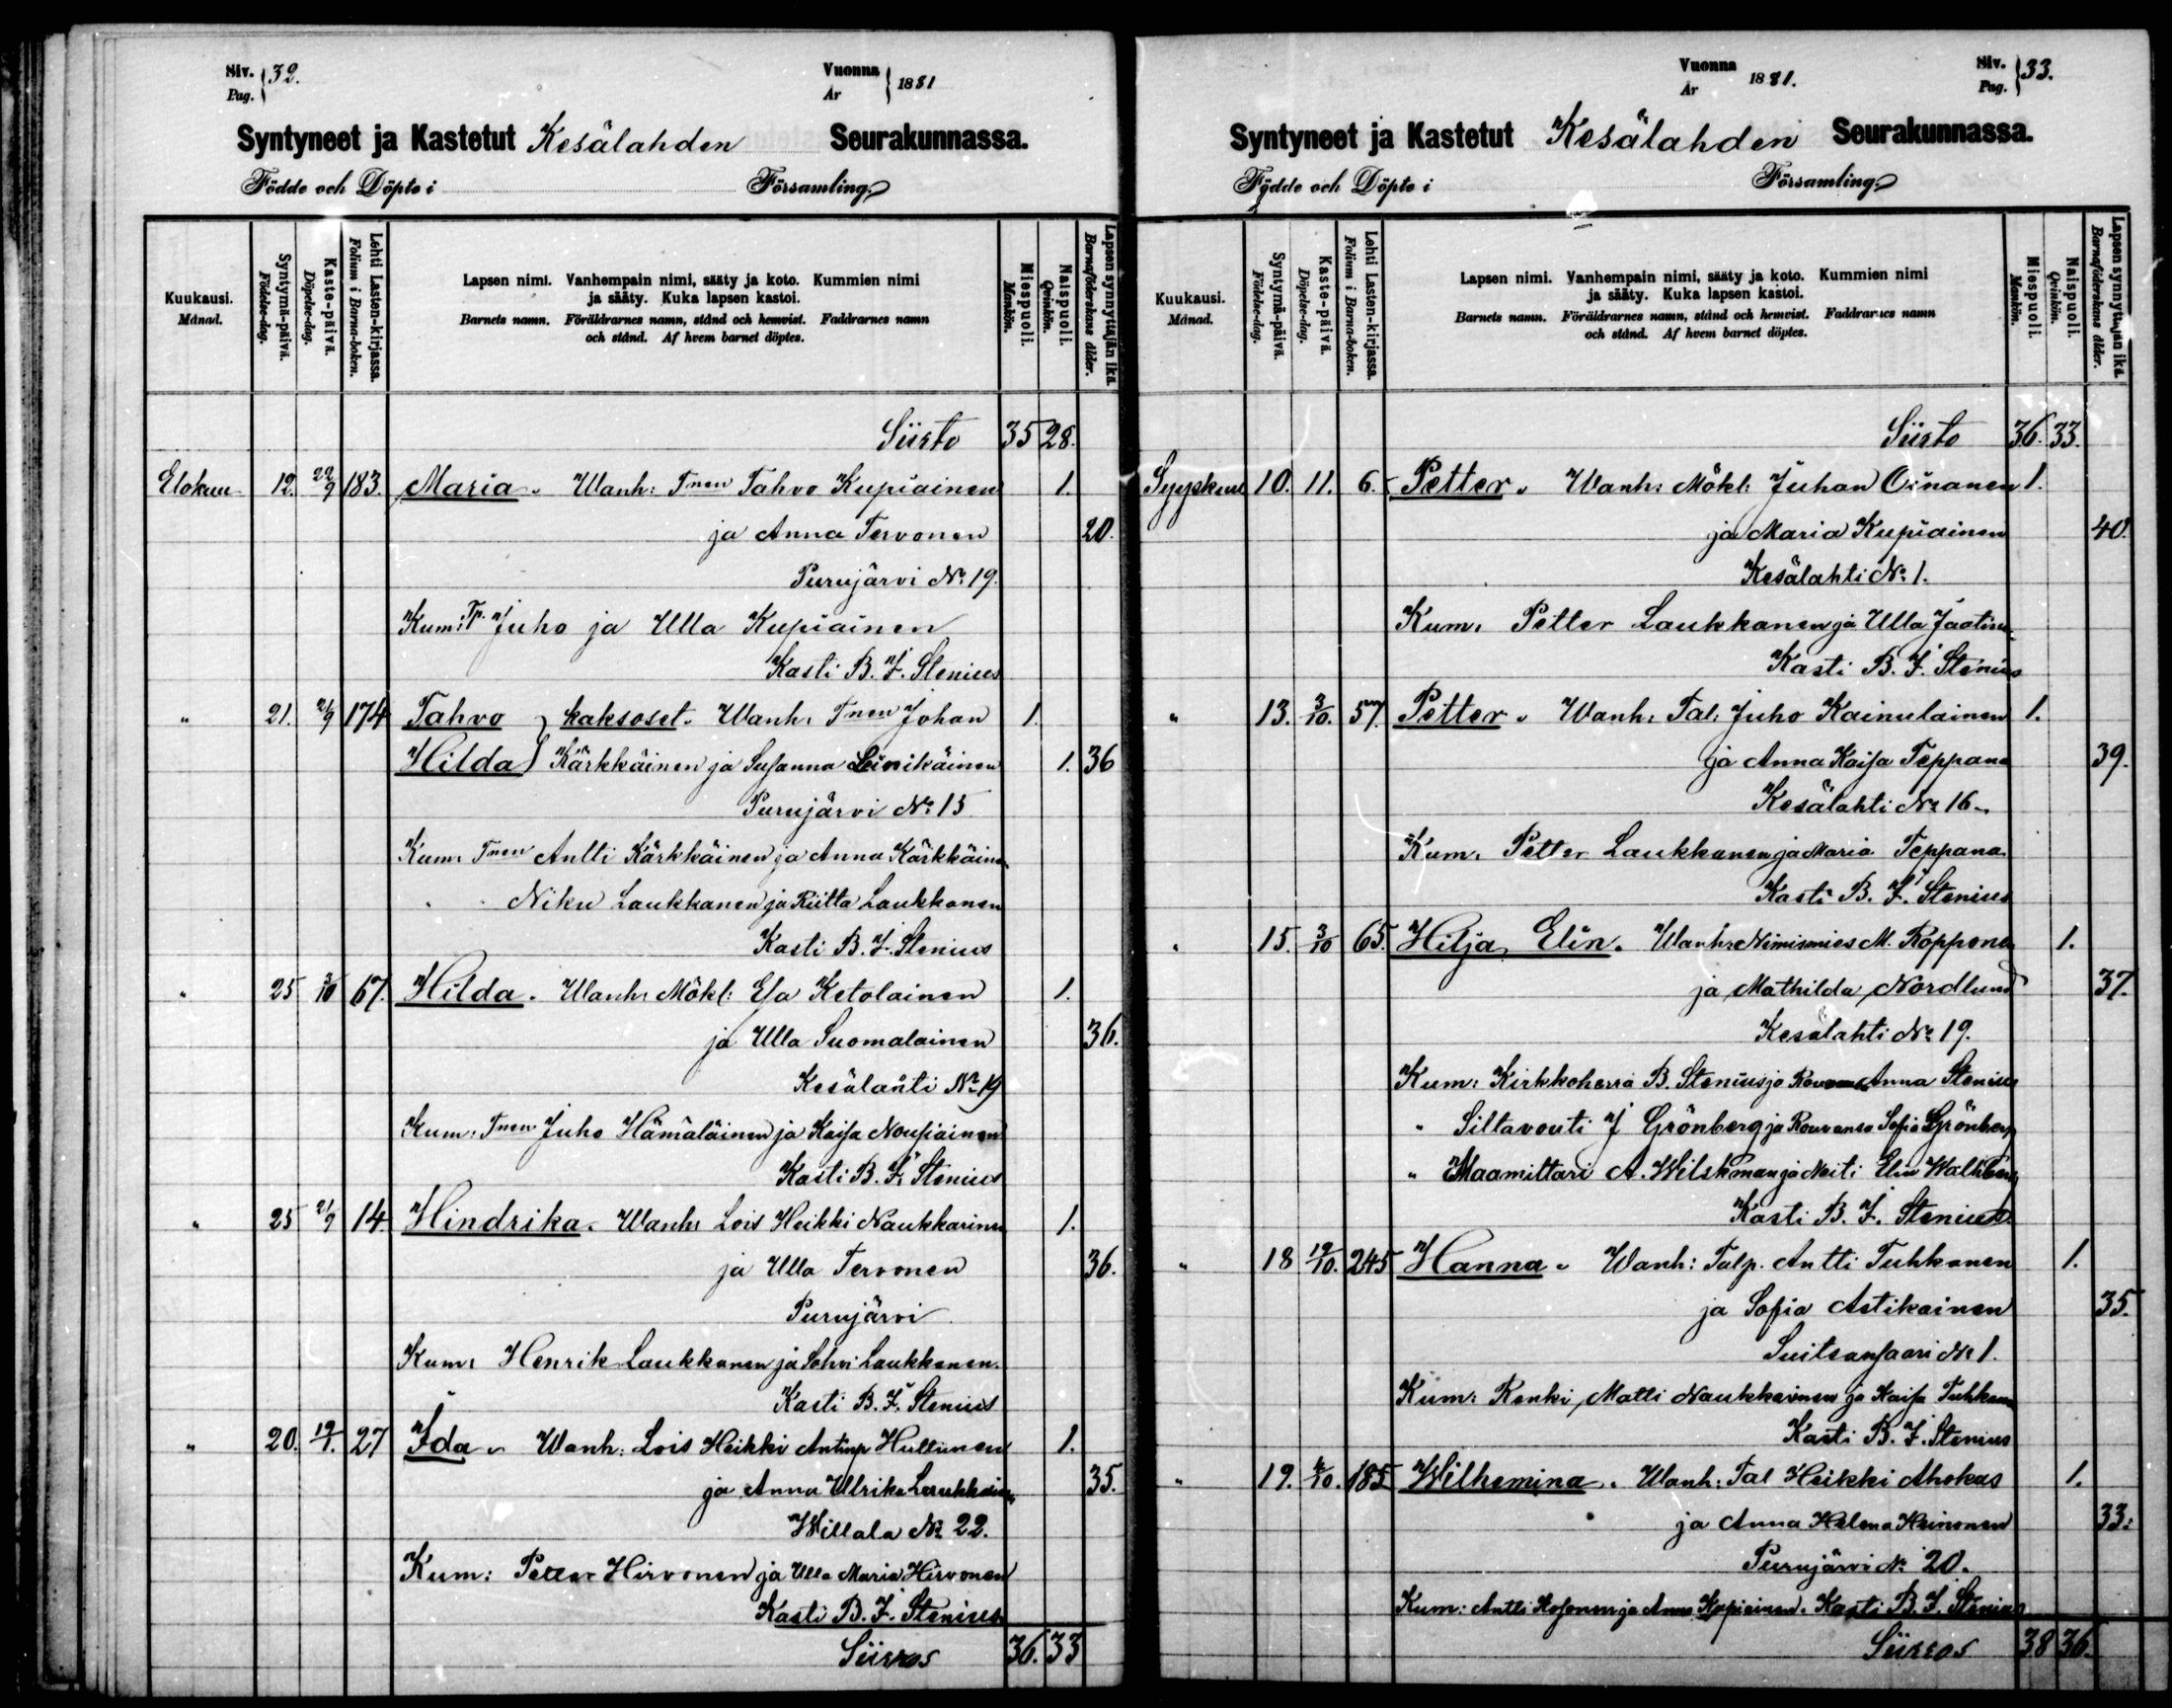 Siv. Pag. 32.
Vuonna År 1881
Syntyneet ja Kastetut Kesälahden Seurakunnassa.
Födde och Döpte i Församling.
Kuukausi. Månad.
Syntymä-päivä. Födelse-dag.
Kaste-päivä. Döpelse-dag.
Lehti Lasten-kirjassa. Folium i Barna-boken.
Lapsen nimi. Vanhempain nimi, sääty ja koto. Kummien nimi
ja sääty. Kuka lapsen kastoi.
Barnets namn. Föräldrarnes namn, stånd och hemvist. Faddrarnes namn
och stånd. Af hvem barnet döptes.
Miespuoli. Mankön.
Naispuoli. Qvinkön.
Lapsen synnyttäjän ikä. Barnaföderskans ålder.
Siirto 35 28.
Elokuu 12. 22/9 183. Maria. Wanh: Tnen Tahvo Kupiainen 1.
ja Anna Tervonen 20.
Purujärvi No 19.
Kum: Tp. Juho ja Ulla Kupiainen
Kasti B. J. Stenius
" 21. 21/9 174 Tahvo } kaksoset. Wanh: Tnen Johan 1.
Hilda } Kärkkäinen ja Susanna Leinikäinen 1. 36
Purujärvi No 15
Kum: Tnen Antti Kärkkäinen ja Anna Kärkkäinen
Niku Laukkanen ja Riitta Laukkanen
Kasti B. J. Stenius
" 25 3/10 67. Hilda. Wanh: Mökl: Esa Ketolainen 1.
ja Ulla Suomalainen 36.
Kesälahti No 19
Kum: Tnen Juho Hämäläinen ja Kaisa Nousiainen
Kasti B. J. Stenius
" 25 21/9 14. Hindrika. Wanh: Lois Heikki Naukkarinen 1.
ja Ulla Tervonen 36.
Purujärvi
Kum: Henrik Laukkanen ja Sohvi Laukkanen.
Kasti B. J. Stenius
" 20. 27 Ida. Wanh: Lois Heikki Antinp Hultunen 1.
ja Anna Ulrika 35.
Willala No 22.
Kum: Petter Hirvonen ja Ulla Maria Hirvonen
Kasti B. J. Stenius
Siirros 36. 33
Vuonna År 1881.
Siv. Pag. 33.
Syntyneet ja Kastetut Kesälahden Seurakunnassa.
Födde och Döpte i Församling.
Kuukausi. Månad.
Syntymä-päivä. Födelse-dag.
Kaste-päivä. Döpelse-dag.
Lehti Lasten-kirjassa. Folium i Barna-boken.
Lapsen nimi. Vanhempain nimi, sääty ja koto. Kummien nimi
ja sääty. Kuka lapsen kastoi.
Barnets namn. Föräldrarnes namn, stånd och hemvist. Faddrarnes namn
och stånd. Af hvem barnet döptes.
Miespuoli. Mankön.
Naispuoli. Qvinkön.
Lapsen synnyttäjän ikä. Barnaföderskans ålder.
Siirto 36. 33.
Syyskuu 10. 11. 6. Petter. Wanh: Mökl: Juhan Oinanen 1.
ja Maria Kupiainen 40.
Kesälahti No 1.
Kum. Petter Laukkanen ja Ulla Jaatinen
Kasti B. J. Stenius
" 13. 3/10. 57. Petter. Wanh: Tal: Juho Kainulainen 1.
ja Anna Kaisa Teppana 39.
Kesälahti No 16.
Kum. Petter Laukkanen ja Maria Teppana
Kasti B. J. Stenius
" 15. 3/10 65. Hilja, Elin. Wanh: Nimismies M. Ropponen 1.
ja Mathilda Nordlund 37.
Kesälahti No 19.
Kum: Kirkkoherra B. Stenius ja Rouvansa Anna Stenius
" Siltavouti J Grönberg ja Rouvansa Sofia Grönberg
" Maamittari A. Wilskman ja Neiti Elin Wallberg
Kasti B. J. Stenius.
" 18 19/10. 245 Hanna. Wanh: Talp. Antti Tuhkanen 1.
ja Sofia Astikainen 35.
Suitsansaari No 1.
Kum: Renki, Matti Naukkarinen ja Kaisa Tuhkanen
Kasti B. J. Stenius
" 19. 185 Wilhemina. Wanh: Tal Heikki Ahokas 1.
ja Anna Helena Heinonen 33.
Purujärvi No 20.
Kum: Antti Kosonen ja Anna Kupiainen. Kasti B. J. Stenius
Siirros 38 36.